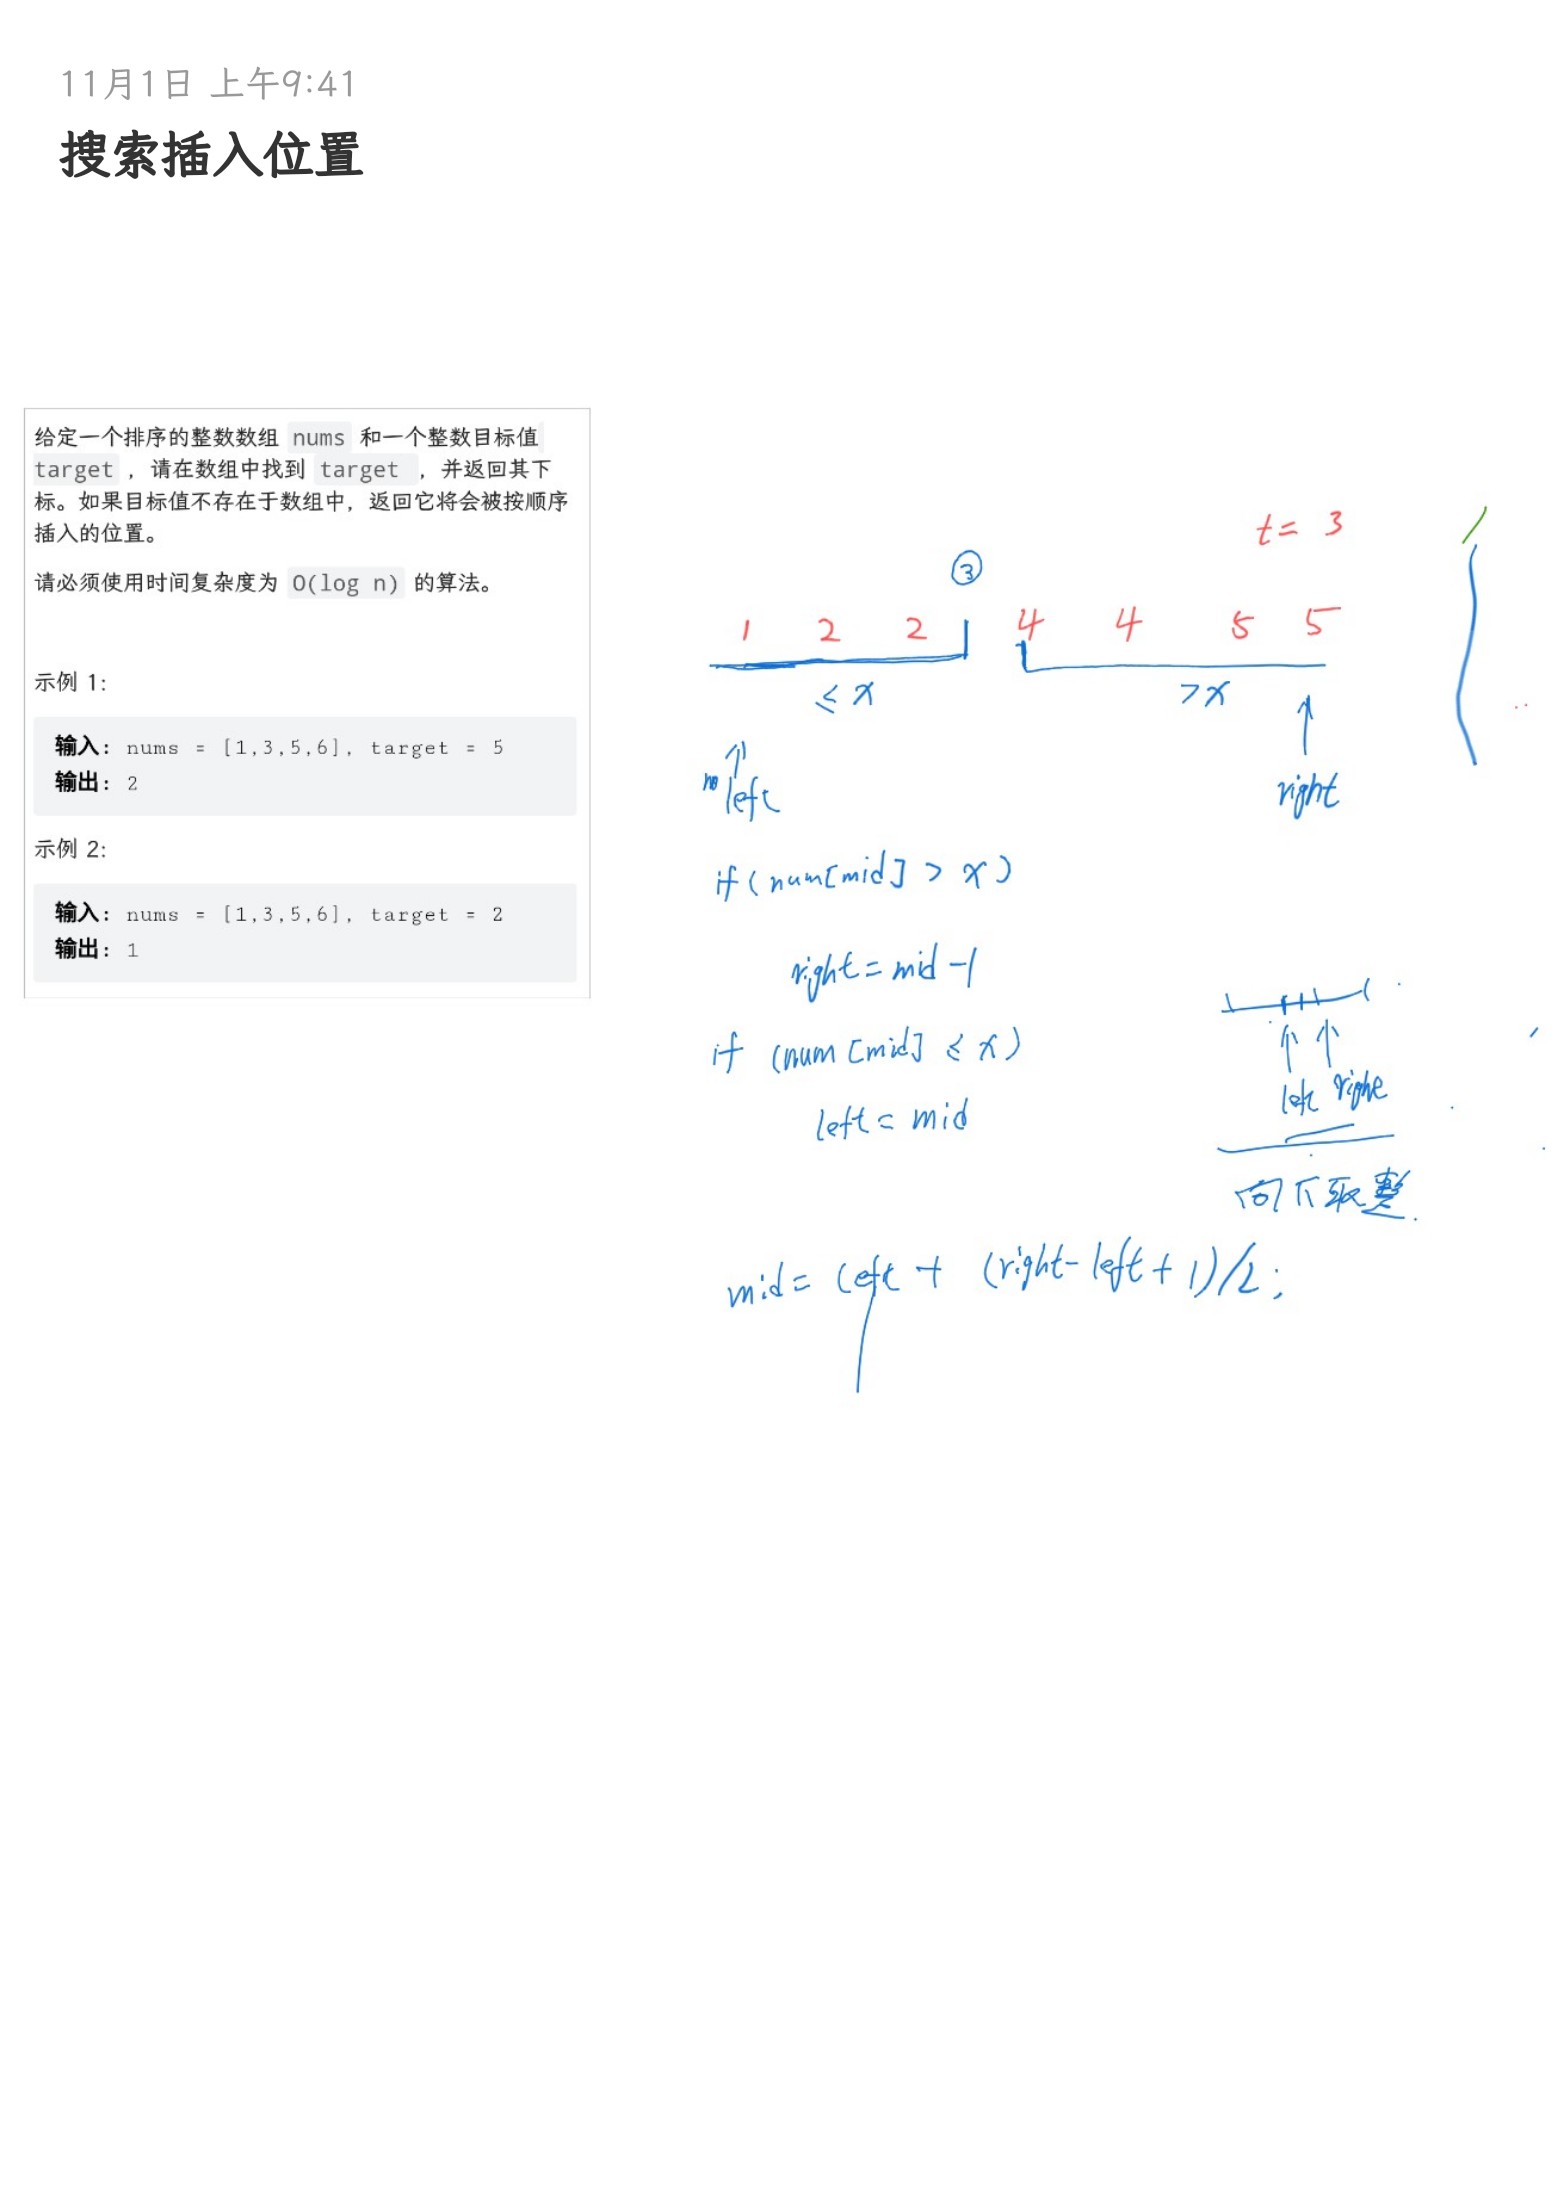 11月1日 上午9:41
搜索插入位置
给定一个排序的整数数组 nums 和一个整数目标值
target ，请在数组中找到 target ，并返回其下
标。如果目标值不存在于数组中，返回它将会被按顺序
插入的位置。
请必须使用时间复杂度为 O(log n) 的算法。
示例 1:
输入: nums = [1,3,5,6], target = 5
输出: 2
示例 2:
输入: nums = [1,3,5,6], target = 2
输出: 1
t= 3
③
1 2 2 4 4 5 5
≤ x >x
left right
if (num[mid] > x)
right = mid -1
if (num [mid] ≤ x)
left = mid
left right
向下取整
mid = left + (right- left + 1)/2;